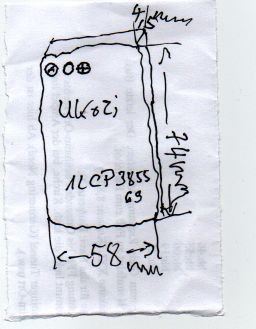 4,5 mm
Ukozi
1LCP3855
69
74 mm
58
mm